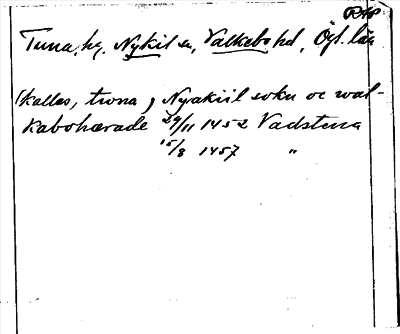 RAP
Tuna, hg. Nykil sn, Valkebo hd, Ögl. län
(kallas, twna) Nyakiil sokn oc wal-
kabohærade 29/11 1452 Vadstena
15/8 1457 "